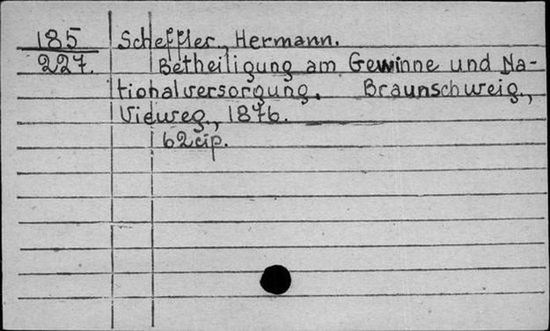 185 Scheffler, Hermann.
227. Betheiligung am Gewinne und Na-
tionalversorgung. Braunschweig,
Vieweg, 1876.